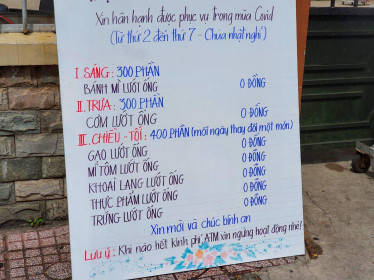 Xin hân hạnh được phục vụ trong mùa Covid
(Từ thứ 2 đến thứ 7 - Chúa nhật nghỉ)
I. SÁNG: 300 PHẦN
BÁNH MÌ LƯỚT ỐNG 0 ĐỒNG
II. TRƯA: 300 PHẦN
CƠM LƯỚT ỐNG 0 ĐỒNG
III. CHIỀU - TỐI: 400 PHẦN (mỗi ngày thay đổi một món)
GẠO LƯỚT ỐNG 0 ĐỒNG
MÌ TÔM LƯỚT ỐNG 0 ĐỒNG
KHOAI LANG LƯỚT ỐNG 0 ĐỒNG
THỰC PHẨM LƯỚT ỐNG 0 ĐỒNG
TRỨNG LƯỚT ỐNG 0 ĐỒNG
Xin mời và chúc bình an
Lưu ý: Khi nào hết kinh phí, ATM xin ngưng hoạt động nhé!